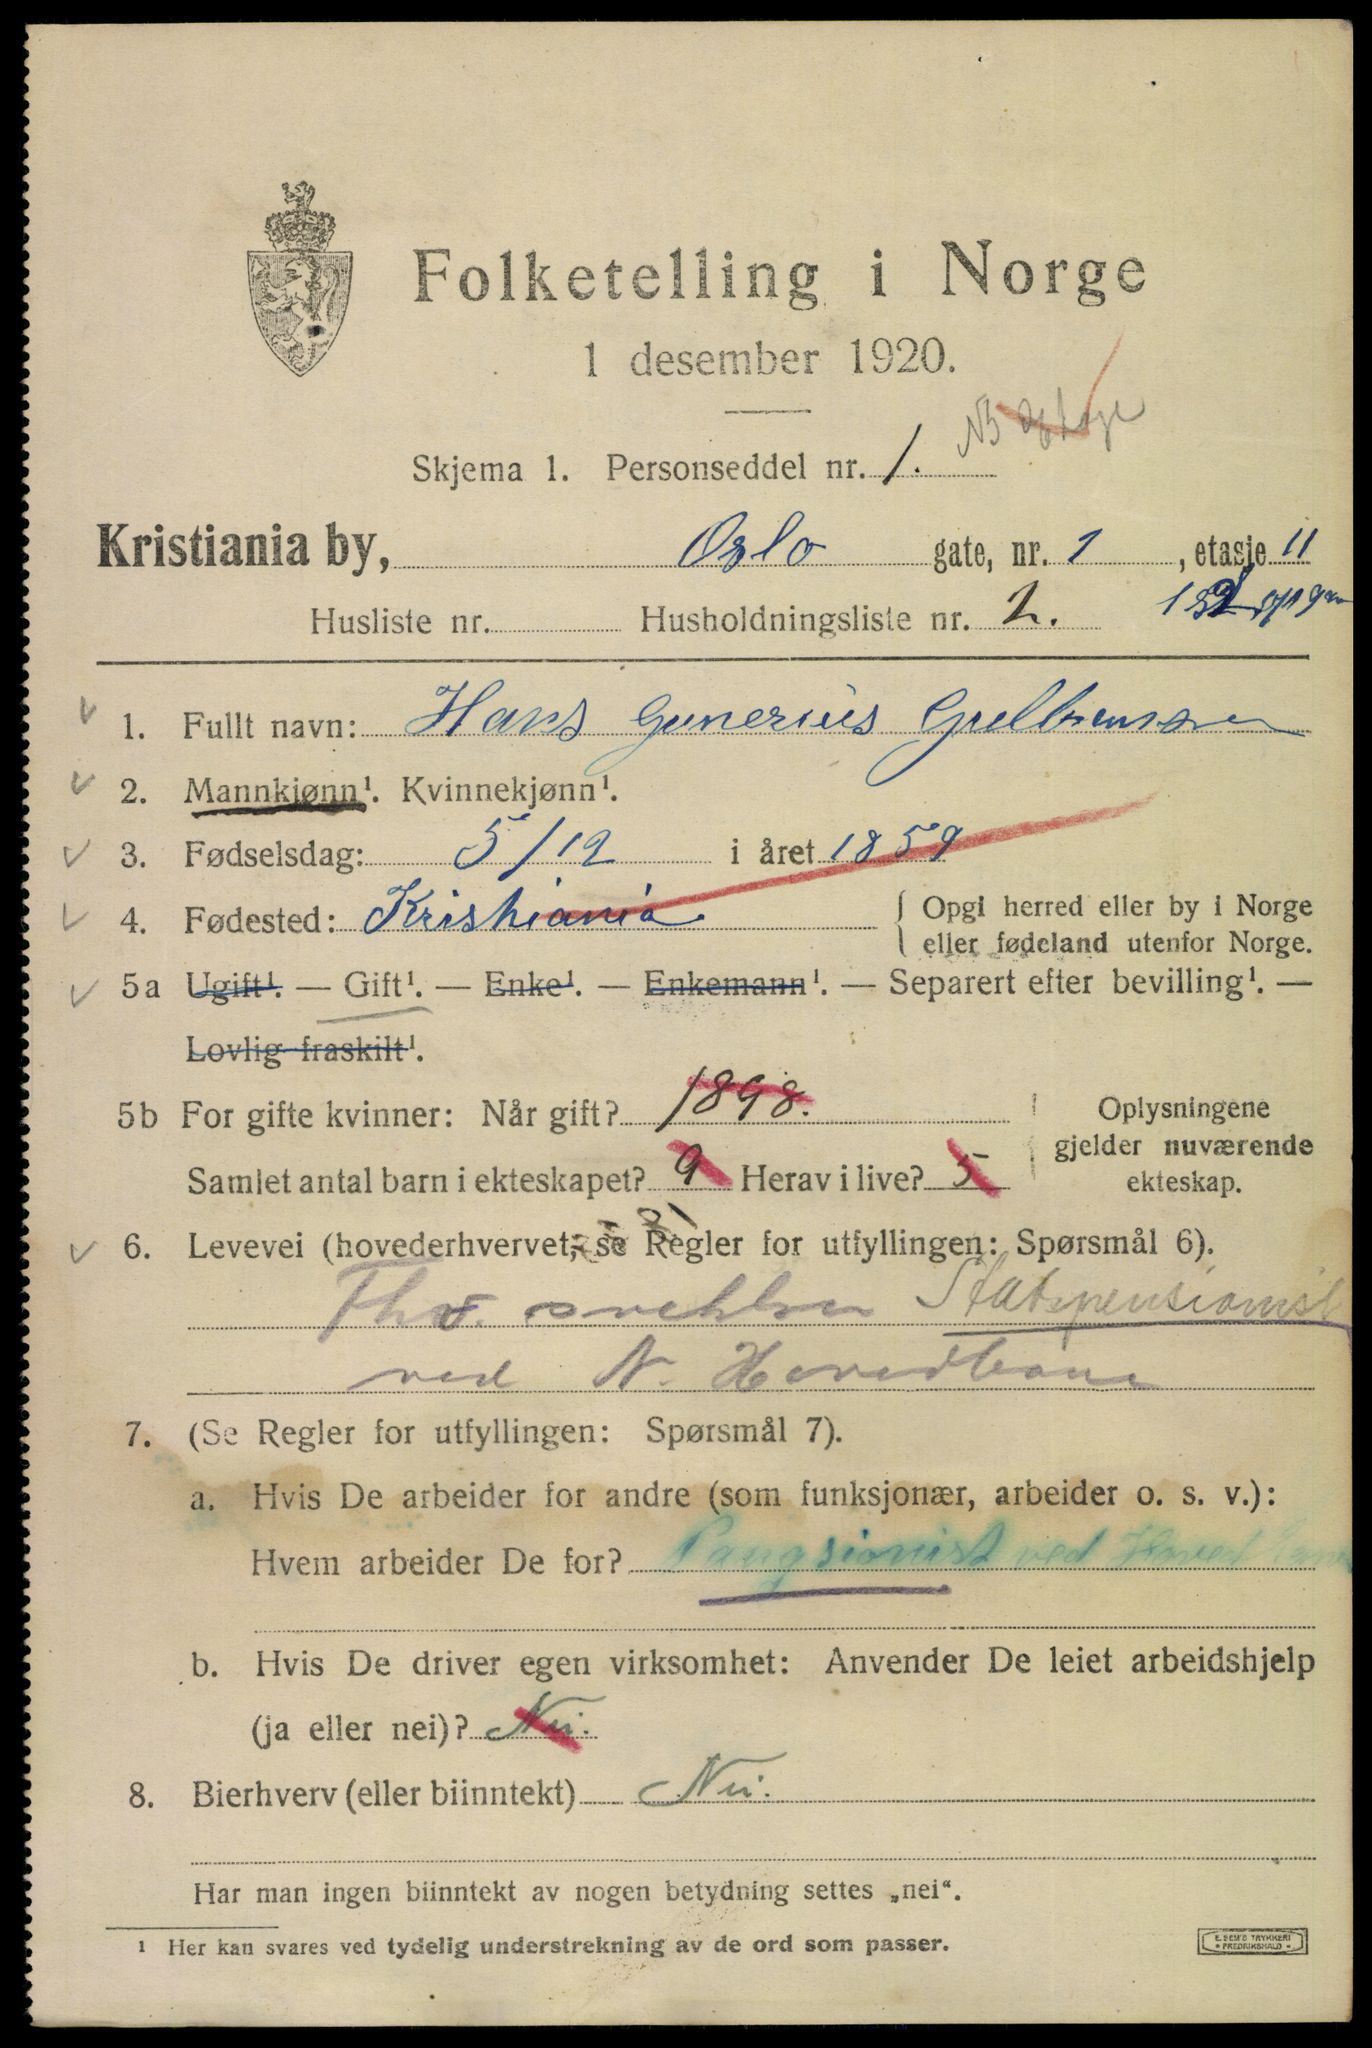 Folketelling i Norge
1 desember 1920.
NB
Skjema 1. Personseddel nr. 1.
Kristiania by, Oslo gate, nr. 1, etasje 11
Husliste nr. Husholdningsliste nr. 2.
1. Fullt navn: Hans Gunerius Gulbransen
2. Mannkjønn¹. Kvinnekjønn¹.
3. Fødselsdag: 5/12 i året 1859
4. Fødested: Kristiania { Opgi herred eller by i Norge
eller fødeland utenfor Norge.
5a Ugift¹. — Gift¹. — Enke¹. — Enkemann¹. — Separert efter bevilling¹. —
Lovlig fraskilt¹.
5b For gifte kvinner: Når gift? 1898. Oplysningene
gjelder nuværende
Samlet antal barn i ekteskapet? 9 Herav i live? 5 ekteskap.
6. Levevei (hovederhvervet; se Regler for utfyllingen: Spørsmål 6).
Fhv. Statspensionist
ved N. Hovedbane
7. (Se Regler for utfyllingen: Spørsmål 7).
a. Hvis De arbeider for andre (som funksjonær, arbeider o. s. v.):
Hvem arbeider De for? Pangsionist ved Hoved
b. Hvis De driver egen virksomhet: Anvender De leiet arbeidshjelp
(ja eller nei)? Nei.
8. Bierhverv (eller biinntekt) Nei.
Har man ingen biinntekt av nogen betydning settes „nei“.
¹ Her kan svares ved tydelig understrekning av de ord som passer.
E. SEM'S TRYKKERI
* FREDRIKSHALD *